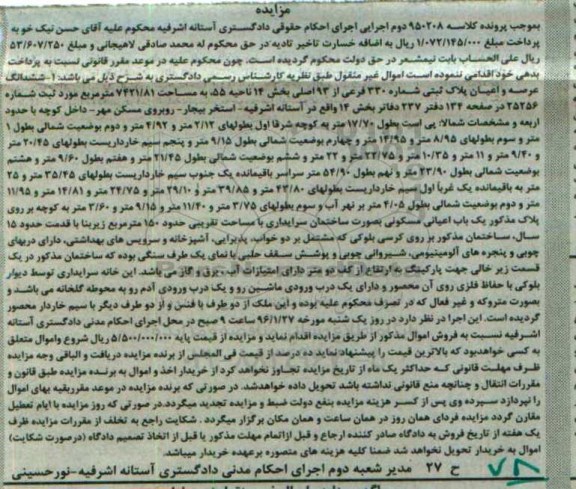 مزایده
بموجب پرونده کلاسه ۹۵۰۲۰۸ دوم اجرایی اجرای احکام حقوقی دادگستری آستانه اشرفیه محکوم علیه آقای حسن نیک خو به
پرداخت مبلغ ۱/۰۷۲/۱۴۵/۰۰۰ ریال به اضافه خسارت تاخیر تادیه در حق محکوم له محمد صادقی لاهیجانی و مبلغ ۵۳/۶۰۷/۲۵۰
ریال علی الحساب بابت نیمعشر در حق دولت محکوم گردیده است. چون محکوم علیه در موعد مقرر قانونی نسبت به پرداخت
بدهی خود اقدامی ننموده است اموال غیر منقول طبق نظریه کارشناس رسمی دادگستری به شرح ذیل می باشد: ۱-ششدانگ
عرصه و اعیان پلاک ثبتی شماره ۳۳۰ فرعی از ۹۳ اصلی بخش ۱۴ ناحیه ۵۵، به مساحت ۷۴۲۱/۸۱ مترمربع مورد ثبت شماره
۲۵۲۵۶ در صفحه ۱۳۴ دفتر ۲۳۷ دفاتر بخش ۱۴ واقع در آستانه اشرفیه- استخر بیجار- روبروی مسکن مهر- داخل کوچه با حدود
اربعه و مشخصات شمالا: پی است بطول ۱۷/۷۰ متر به کوچه شرقا اول بطولهای ۲/۱۲ متر و ۴/۹۲ متر و دوم بوضعیت شمالی بطول ۱
متر و سوم بطولهای ۸/۹۵ متر و ۱۴/۹۵ متر و چهارم بوضعیت شمالی بطول ۹/۱۵ متر و پنجم سیم خارداریست بطولهای ۲۰/۴۵ متر
و ۹/۴۰ متر و ۱۱ متر و ۱۰/۳۵ متر و ۲۲/۷۵ متر و ۲۲ متر و ششم بوضعیت شمالی بطول ۲۱/۴۵ متر و هفتم بطول ۹/۶۰ متر و هشتم
بوضعیت شمالی بطول ۲۳/۹۰ متر و نهم بطول ۵۴/۹۰ متر سراسر باقیمانده یک جنوب سیم خارداریست بطولهای ۳۵/۴۵ متر و ۲۵
متر به باقیمانده یک غربا اول سیم خارداریست بطولهای ۴۳/۸۰ متر و ۳۹/۸۵ متر و ۲۹/۱۰ متر و ۲۴/۷۵ متر و ۱۴/۸۱ متر و ۱۱/۹۵
متر و دوم بوضعیت شمالی بطول ۴/۰۵ متر بر نهر آب و سوم بطولهای ۳/۷۵ متر و ۱۱/۴۰ متر و ۹/۱۵ متر و ۳/۶۰ متر به کوچه بر روی
پلاک مذکور یک باب اعیانی مسکونی بصورت ساختمان سرایداری با مساحت تقریبی حدود ۱۵۰ مترمربع زیربنا با قدمت حدود ۱۵
سال، ساختمان مذکور بر روی کرسی بلوکی که مشتمل بر دو خواب، پذیرایی، آشپزخانه و سرویس های بهداشتی، دارای دربهای
چوبی و پنجره های آلومینیومی، شیروانی چوبی و پوشش سقف حلبی با نمای یک طرف سنگی بوده که ساختمان مذکور در یک
قسمت زیر خالی جهت پارکینگ به ارتفاع از کف دو متر دارای امتیازات آب، برق و گاز می باشد. این خانه سرایداری توسط دیوار
بلوکی با حفاظ فلزی روی آن محصور و دارای یک درب ورودی ماشین رو و یک درب ورودی آدم رو به محوطه گلخانه می باشد و
بصورت متروکه و غیر فعال که در تصرف محکوم علیه بوده و این ملک از دو طرف با فنس و از دو طرف دیگر با سیم خاردار محصور
گردیده است. این اجرا در نظر دارد در روز یک شنبه مورخه ۹۶/۱/۲۷ ساعت ۹ صبح در محل اجرای احکام مدنی دادگستری آستانه
اشرفیه نسبت به فروش اموال مذکور از طریق مزایده اقدام نماید و مزایده از قیمت پایه ۵/۵۰۰/۰۰۰/۰۰۰ ریال شروع واموال متعلق
به کسی خواهدبود که بالاترین قیمت را پیشنهاد نماید ده درصد از قیمت فی المجلس از برنده مزایده دریافت و الباقی وجه مزایده
ظرف مهلت قانونی که حداکثر یک ماه از تاریخ مزایده تجاوز نخواهد کرد از خریدار اخذ و اموال به برنده مزایده طبق قانون و
مقررات انتقال و چنانچه منع قانونی نداشته باشد تحویل داده خواهدشد. در صورتی که برنده مزایده در موعد مقرربقیه بهای اموال
را نپردازد سپرده وی پس از کسر هزینه مزایده بنفع دولت ضبط و مزایده تجدید میگردد.در صورتی که روز مزایده با ایام تعطیل
مقارن گردد مزایده فردای همان روز در همان ساعت و همان مکان برگزار میگردد . شکایت راجع به تخلف از مقررات مزایده ظرف
یک هفته از تاریخ فروش به دادگاه صادر کننده ارجاع و قبل ازاتمام مهلت مذکور یا قبل از اتخاذ تصمیم دادگاه (درصورت شکایت)
اموال به خریدار تحویل نخواهد شد ضمنا کلیه هزینه های متصوره برعهده خریدار میباشد.
ح ۲۷ مدیر شعبه دوم اجرای احکام مدنی دادگستری آستانه اشرفیه-نورحسینی